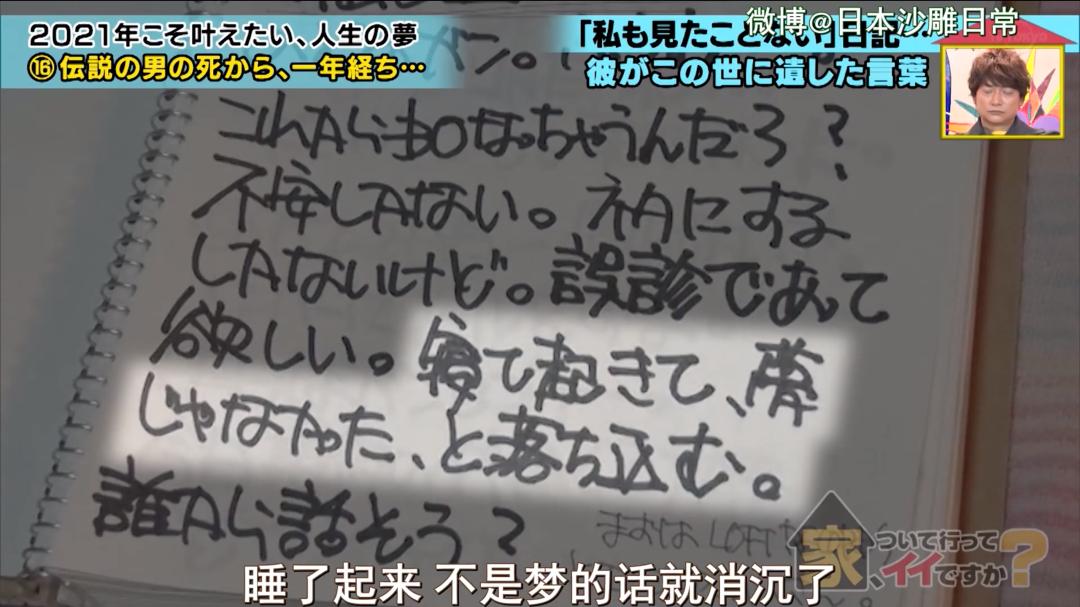 微博@日本沙雕日常
2021年こそ叶えたい、人生の夢
⑯伝説の男の死から、一年経ち…
「私も見たことない」日記…
彼がこの世に遺した言葉
ガン。
これからどうなっちゃうんだろ？
不安しかない。ネタにする
しかないけど。誤診であって
欲しい。寝て起きて、夢
じゃなかった、と落ち込む。
誰から話そう？
まずはLOFT
家、ついて行ってイイですか？
睡了起来 不是梦的话就消沉了